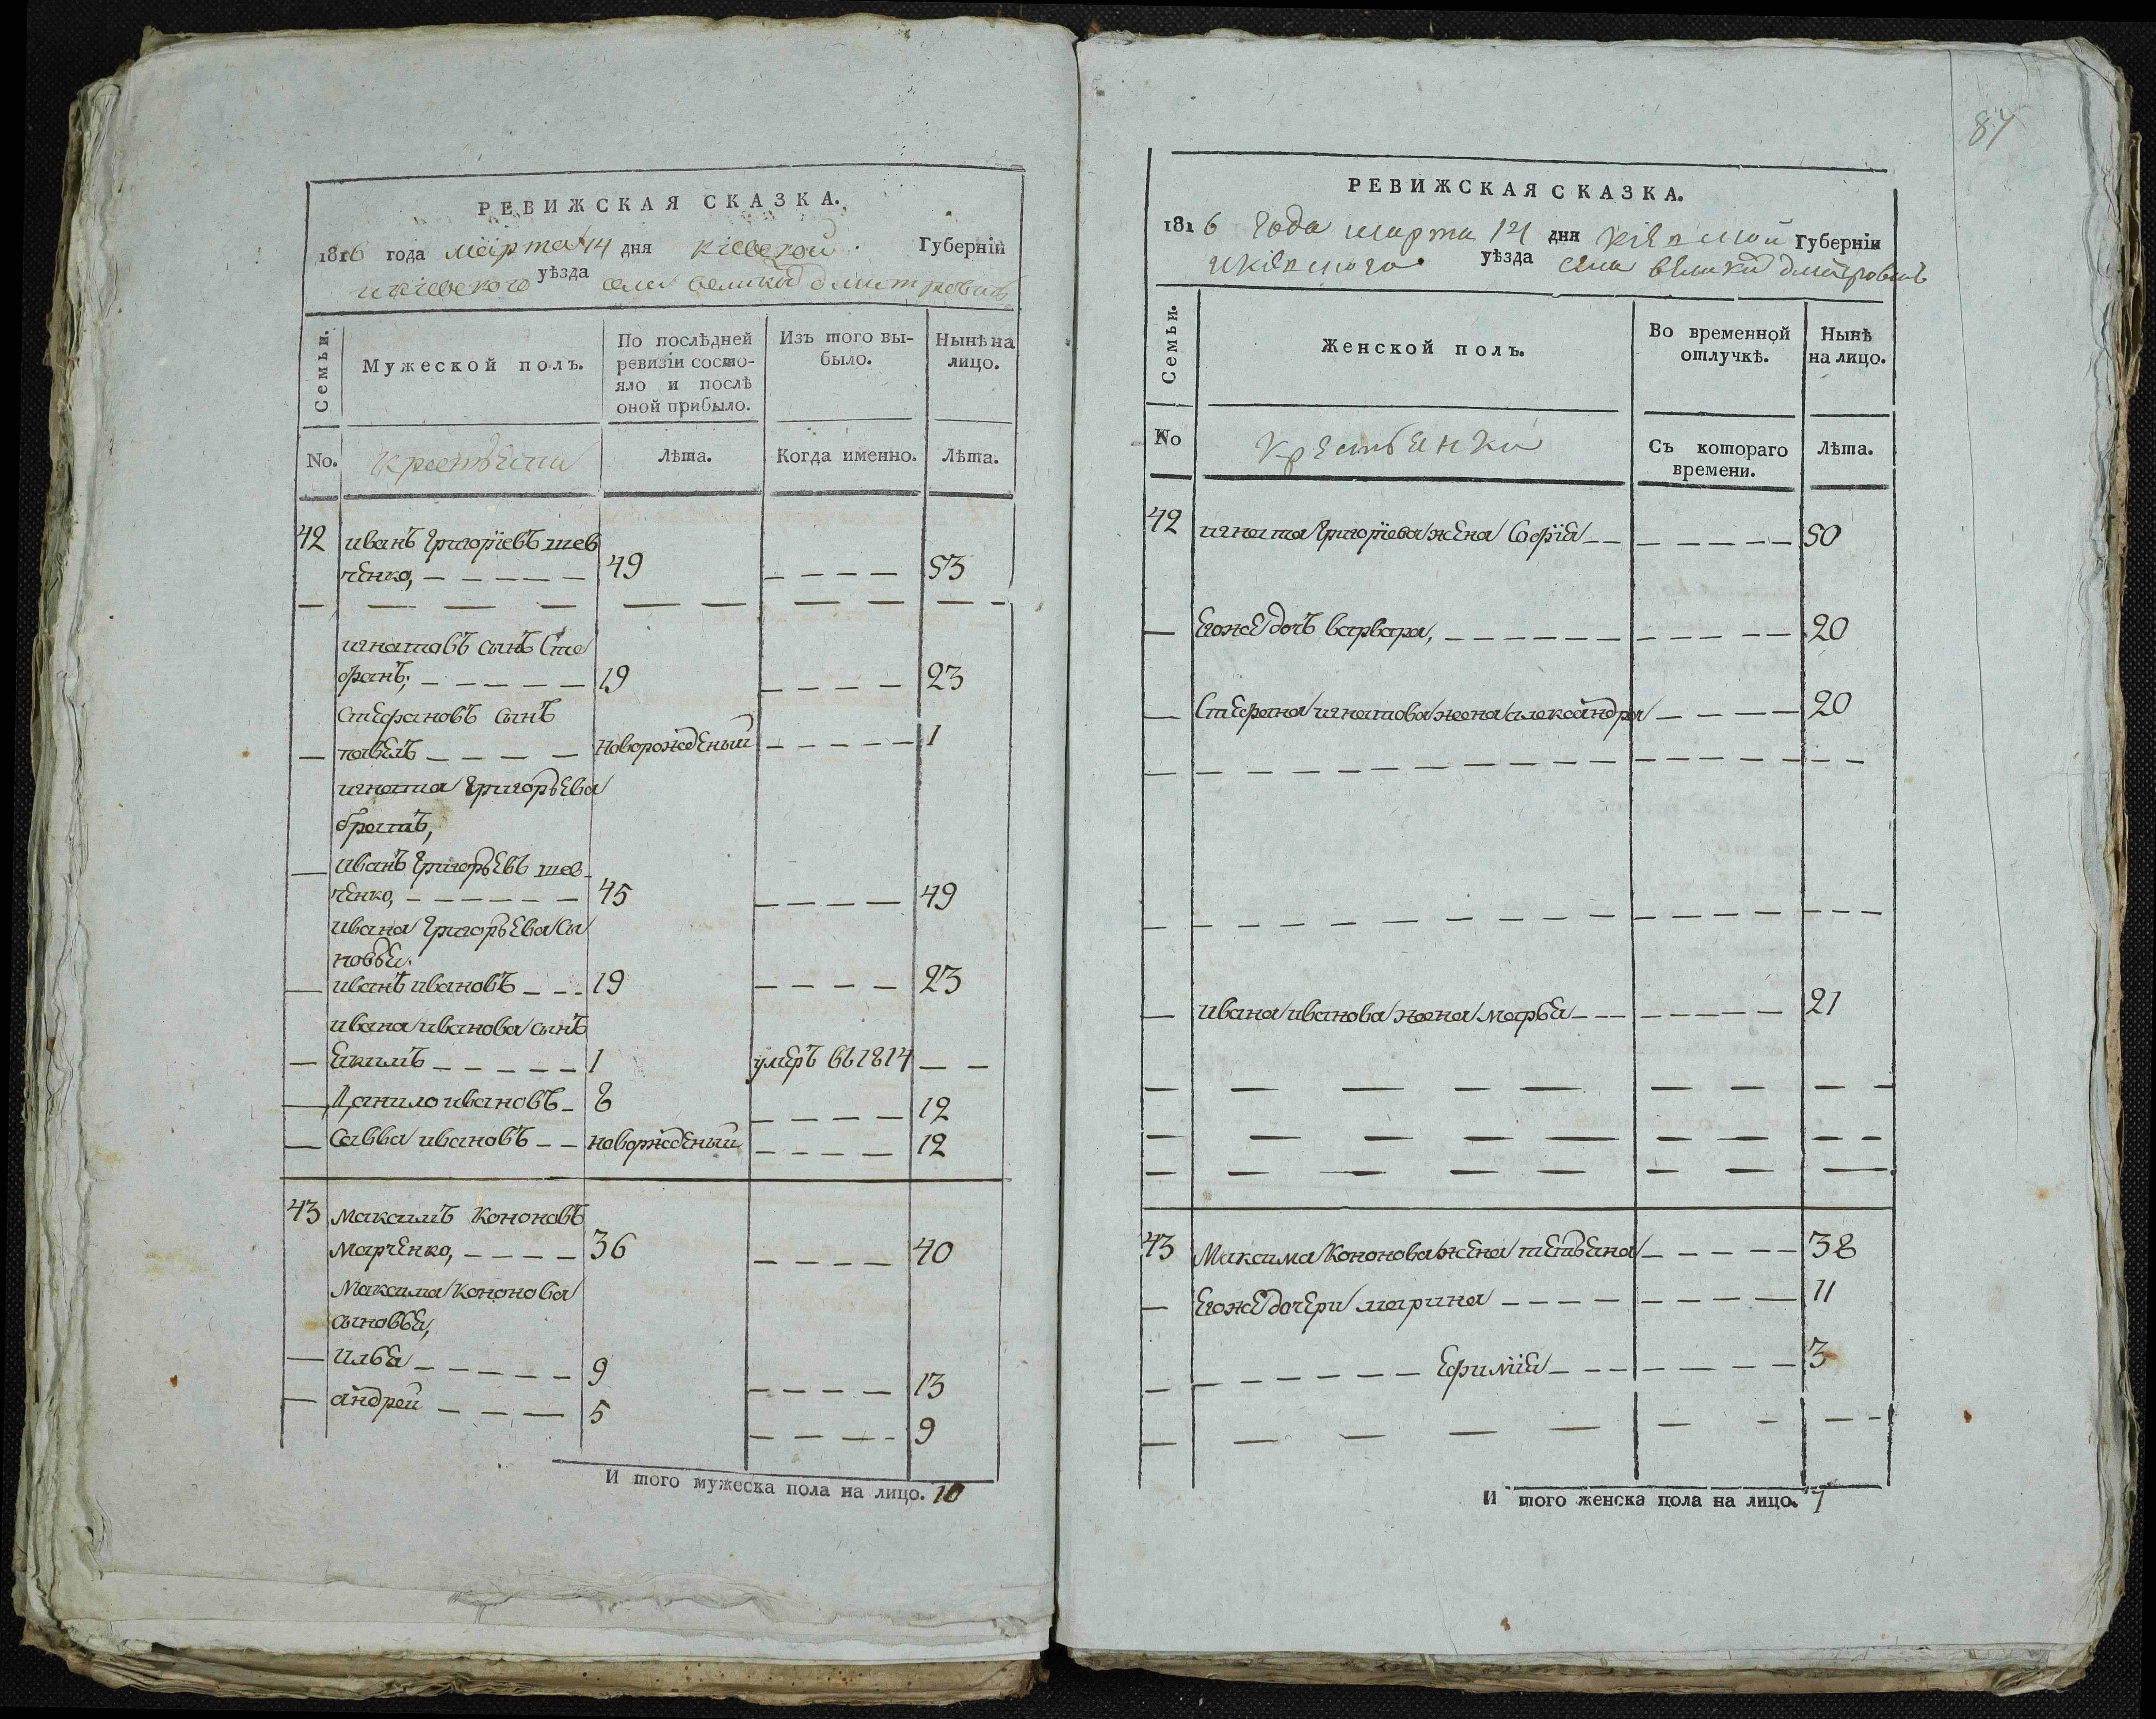 РЕВИЖСКАЯ СКАЗКА.
1816 года марта 14 дня кіевской Губерніи
и кіевского уѣзда села великих дмитровичь
Семьи. Мужеской полъ. По послѣдней ревизіи состояло и послѣ оной прибыло. Изъ того выбыло. Нынѣ на лицо.
No. крестьяни Лѣта. Когда именно. Лѣта.
42 иванъ григорїевъ шев
ченко, 49 53
игнатовъ сынъ Сте
фанъ, 19 23
Стефановъ сынъ
павелъ новорожденый 1
игната григорьева
братъ,
иванъ григорьевъ шев
ченко, 45 49
ивана григорьева сы
новья.
иванъ ивановъ 19 23
ивана иванова сынъ
Екимъ 1 умеръ въ 1814
Данило ивановъ 8 12
Савва ивановъ новорожденый 12
43 максимъ кононовъ
марченко, 36 40
Максима кононова
сыновья,
илья 9 13
андрей 5 9
И того мужеска пола на лицо. 10
87
РЕВИЖСКАЯ СКАЗКА.
1816 года марта 14 дня кіевской Губерніи
уѣзда села великих дмитровичь
Семьи. Женской полъ. Во временной отлучкѣ. Нынѣ на лицо.
No крестьянки Съ котораго времени. Лѣта.
42 игната григорїева жена Софїя 50
Егоже дочь варвара, 20
Стефана игнатова жена александра 20
ивана иванова жена марья 21
43 Максима Кононова жена татьяна 38
Егоже дочери марина 11
Ефимїя 3
И того женска пола на лицо. 7